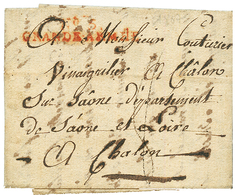 N° 5
GRANDE ARMÉE
A Monsieur Couturier
Vinaigrilier A Châlon
Sur Saône département
de Saône et Loire
A Chalon